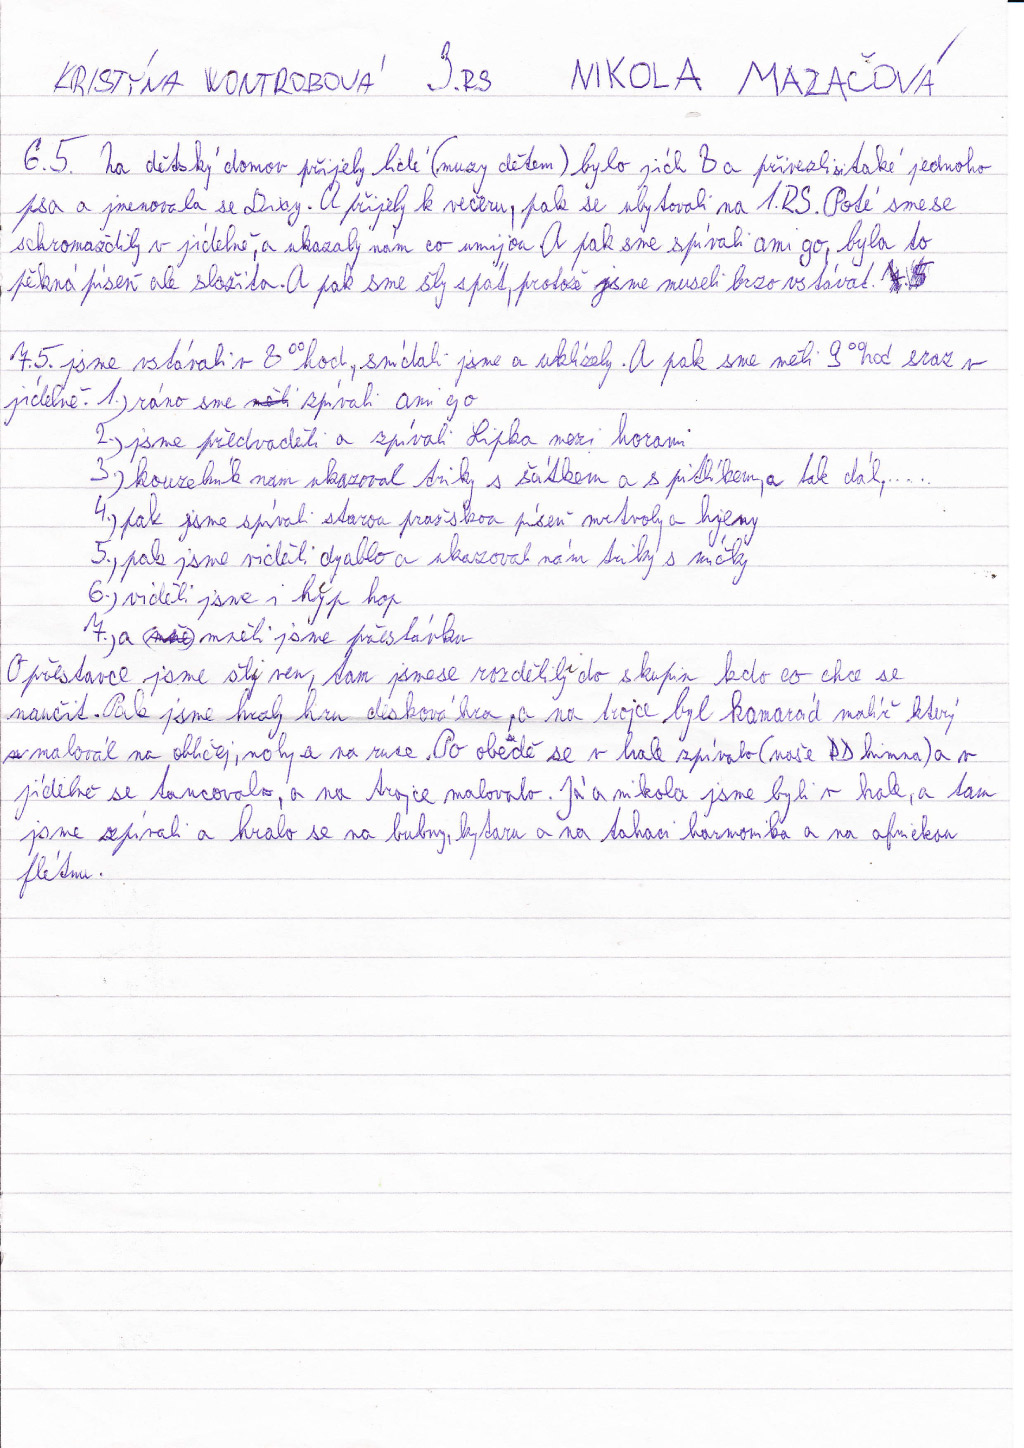 KRISTÝNA KONTROBOVÁ 3.RS NIKOLA MAZAČOVÁ
6.5. Na dětský domov přijely lidé (muzy dětem) bylo jich 8 a přivezli si také jednoho
psa a jmenovala se Dixy. A přijely k večeru, pak se ubytovali na 1.RS. Poté sme se
schromaždily v jídelně, a ukazaly nám co umijou A pak sme spívali ami go, byla to
pěkná píseň ale složita. A pak sme šly spát, protože jsme museli brzo vstávat. 7.5
7.5. jsme vstávali v 8⁰⁰hod, snídali jsme a uklízely. A pak sme měli 9⁰⁰hod sraz v
jídelně. 1.) ráno sme měli zpívali ami go
2.) jsme předvaděli a zpívali Lipka mezi horami
3.) kouzelník nam ukazoval triky s šátkem a s pitlíkem, a tak dál,.....
4.) pak jsme spívali starou pražskou píseň mrtvoly a hjeny
5.) pak jsme viděli dyablo a ukazovali nám triky s míčky
6.) viděli jsme i hyp hop
7.) a měli jsme přestávku
O přestavce jsme šly ven, tam jsme se rozdělily do skupin kdo co chce se
naučit. Pak jsme hraly hru disková hra, a na trojce byl kamarád malíř který
maloval na obličej, nohy a na ruce. Po obědě se v hale zpívalo (naše DD himna) a v
jídelně se tancovalo, a na trojce malovalo. Já a nikola jsme byli v hale, a tam
jsme zpívali a hralo se na bubny, kytaru a na tahaci harmonika a na africkou
flétnu.